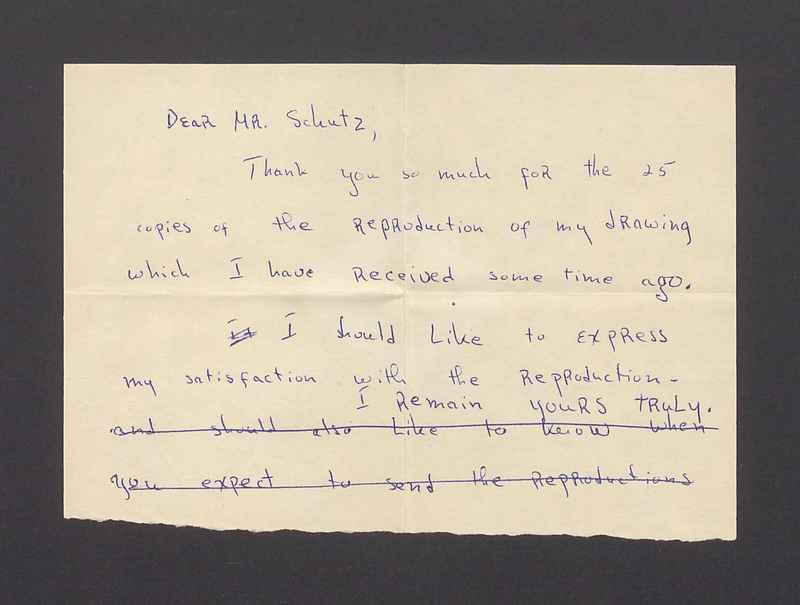 Dear Mr. Schutz,
Thank you so much for the 25
copies of the Reproduction of my drawing
which I have Received some time ago.
I should Like to express
my satisfaction with the Reproduction-
I Remain YOURS TRULY.
and should also Like to know when
you expect to send the Reproductions